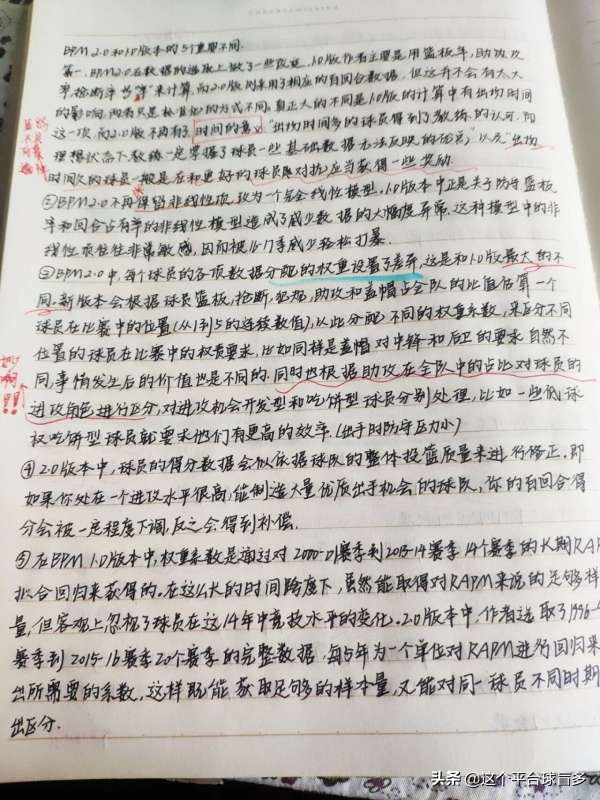 BPM 2.0和1.0版本的5个重要不同.
第一,BPM2.0在数据的选取上做了一些改进.1.0版作者主要是用篮板率,助攻
率,抢断率"等"来计算,而2.0版则采用了相应的百回合数据,但这并不会有太大
的影响,两者只是标准化的方式不同.真正大的不同是1.0版的计算中有出场时间
这一项,而2.0版不再有.时间的意义"出场时间多的球员得到了教练的认可,即
理想状态下教练一定掌握了球员一些基础数据无法反映的优点;"以及"出场
时间久的球员一般是在和更好的球员做对抗,应当获得一些奖励.
②BPM2.0不再保留非线性项,改为一个完全线性模型.1.0版本中正是关于防守篮板
率和回合占有率的非线性模型造成了威少数据的大幅度异常,这种模型中的非
线性项往往非常敏感,因而被16-17季威少轻松打暴.
③BPM2.0中,每个球员的各项数据分配的权重设置了差异,这是和1.0版最大的不
同.新版本会根据球员篮板,抢断,犯规,助攻和盖帽占全队的比值估算一个
球员在比赛中的位置(从1到5的连续数值),以此分配不同的权重系数,来区分不同
位置的球员在比赛中的权责要求,比如同样是盖帽对中锋和后卫的要求自然不
同,事情发生后的价值也是不同的.同时也根据助攻在全队中的占比对球员的
进攻角色进行区分,对进攻机会开发型和吃饼型球员分别处理,比如一些低球
权吃饼型球员就要求他们有更高的效率.(出手时防守压力小)
④2.0版本中,球员的得分数据会似依据球队的整体投篮质量来进行修正.即
如果你处在一个进攻水平很高,能制造大量优质出手机会的球队,你的百回合得
分会被一定程度下调,反之会得到补偿.
⑤在BPM 1.0版本中,权重系数是通过对2000-01赛季到2013-14赛季14个赛季的长期RAP
拟合回归来获得的.在这么大的时间跨度下,虽然能取得对RAPM来说的足够样
量,但客观上忽视了球员在这14年中竞技水平的变化.2.0版本中,作者选取了1996-9
赛季到2015-16赛季20个赛季的完整数据,每5年为一个单位对RAPM进行回归来
出所需要的系数,这样既能获取足够的样本量,又能对同一球员不同时期
出区分.
头条 @这个平台球盲多